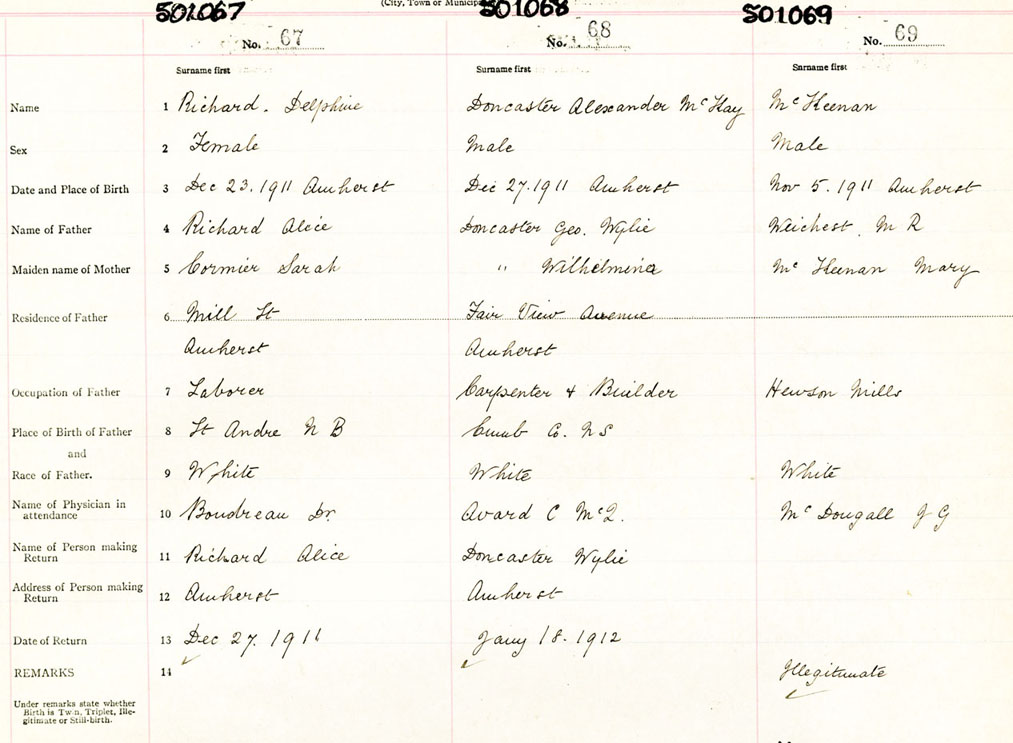 (City, Town or Municip
501067 501068 501069
No. 67 No. 68 No. 69
Surname first Surname first Surname first
Name 1 Richard. Delphine Doncaster Alexander McKay McKeenan
Sex 2 Female Male Male
Date and Place of Birth 3 Dec 23. 1911 Amherst Dec 27. 1911 Amherst Nov 5. 1911 Amherst
Name of Father 4 Richard Alice Doncaster Geo. Wylie Weichest, M R
Maiden name of Mother 5 Cormier Sarah " Wilhelmina McKeenan Mary
Residence of Father 6 Mill St Fair View Avenue
Amherst Amherst
Occupation of Father 7 Laborer Carpenter & Builder Hewson Mills
Place of Birth of Father 8 St Andre N B Cumb Co. N S
and
Race of Father. 9 White White White
Name of Physician in attendance 10 Boudreau Dr. Avard C McQ. McDougall J G
Name of Person making Return 11 Richard Alice Doncaster Wylie
Address of Person making Return 12 Amherst Amherst
Date of Return 13 Dec 27. 1911 Jany 18. 1912
REMARKS 14 Illegitimate
Under remarks state whether
Birth is Twin, Triplet, Ille-
gitimate or Still-birth.